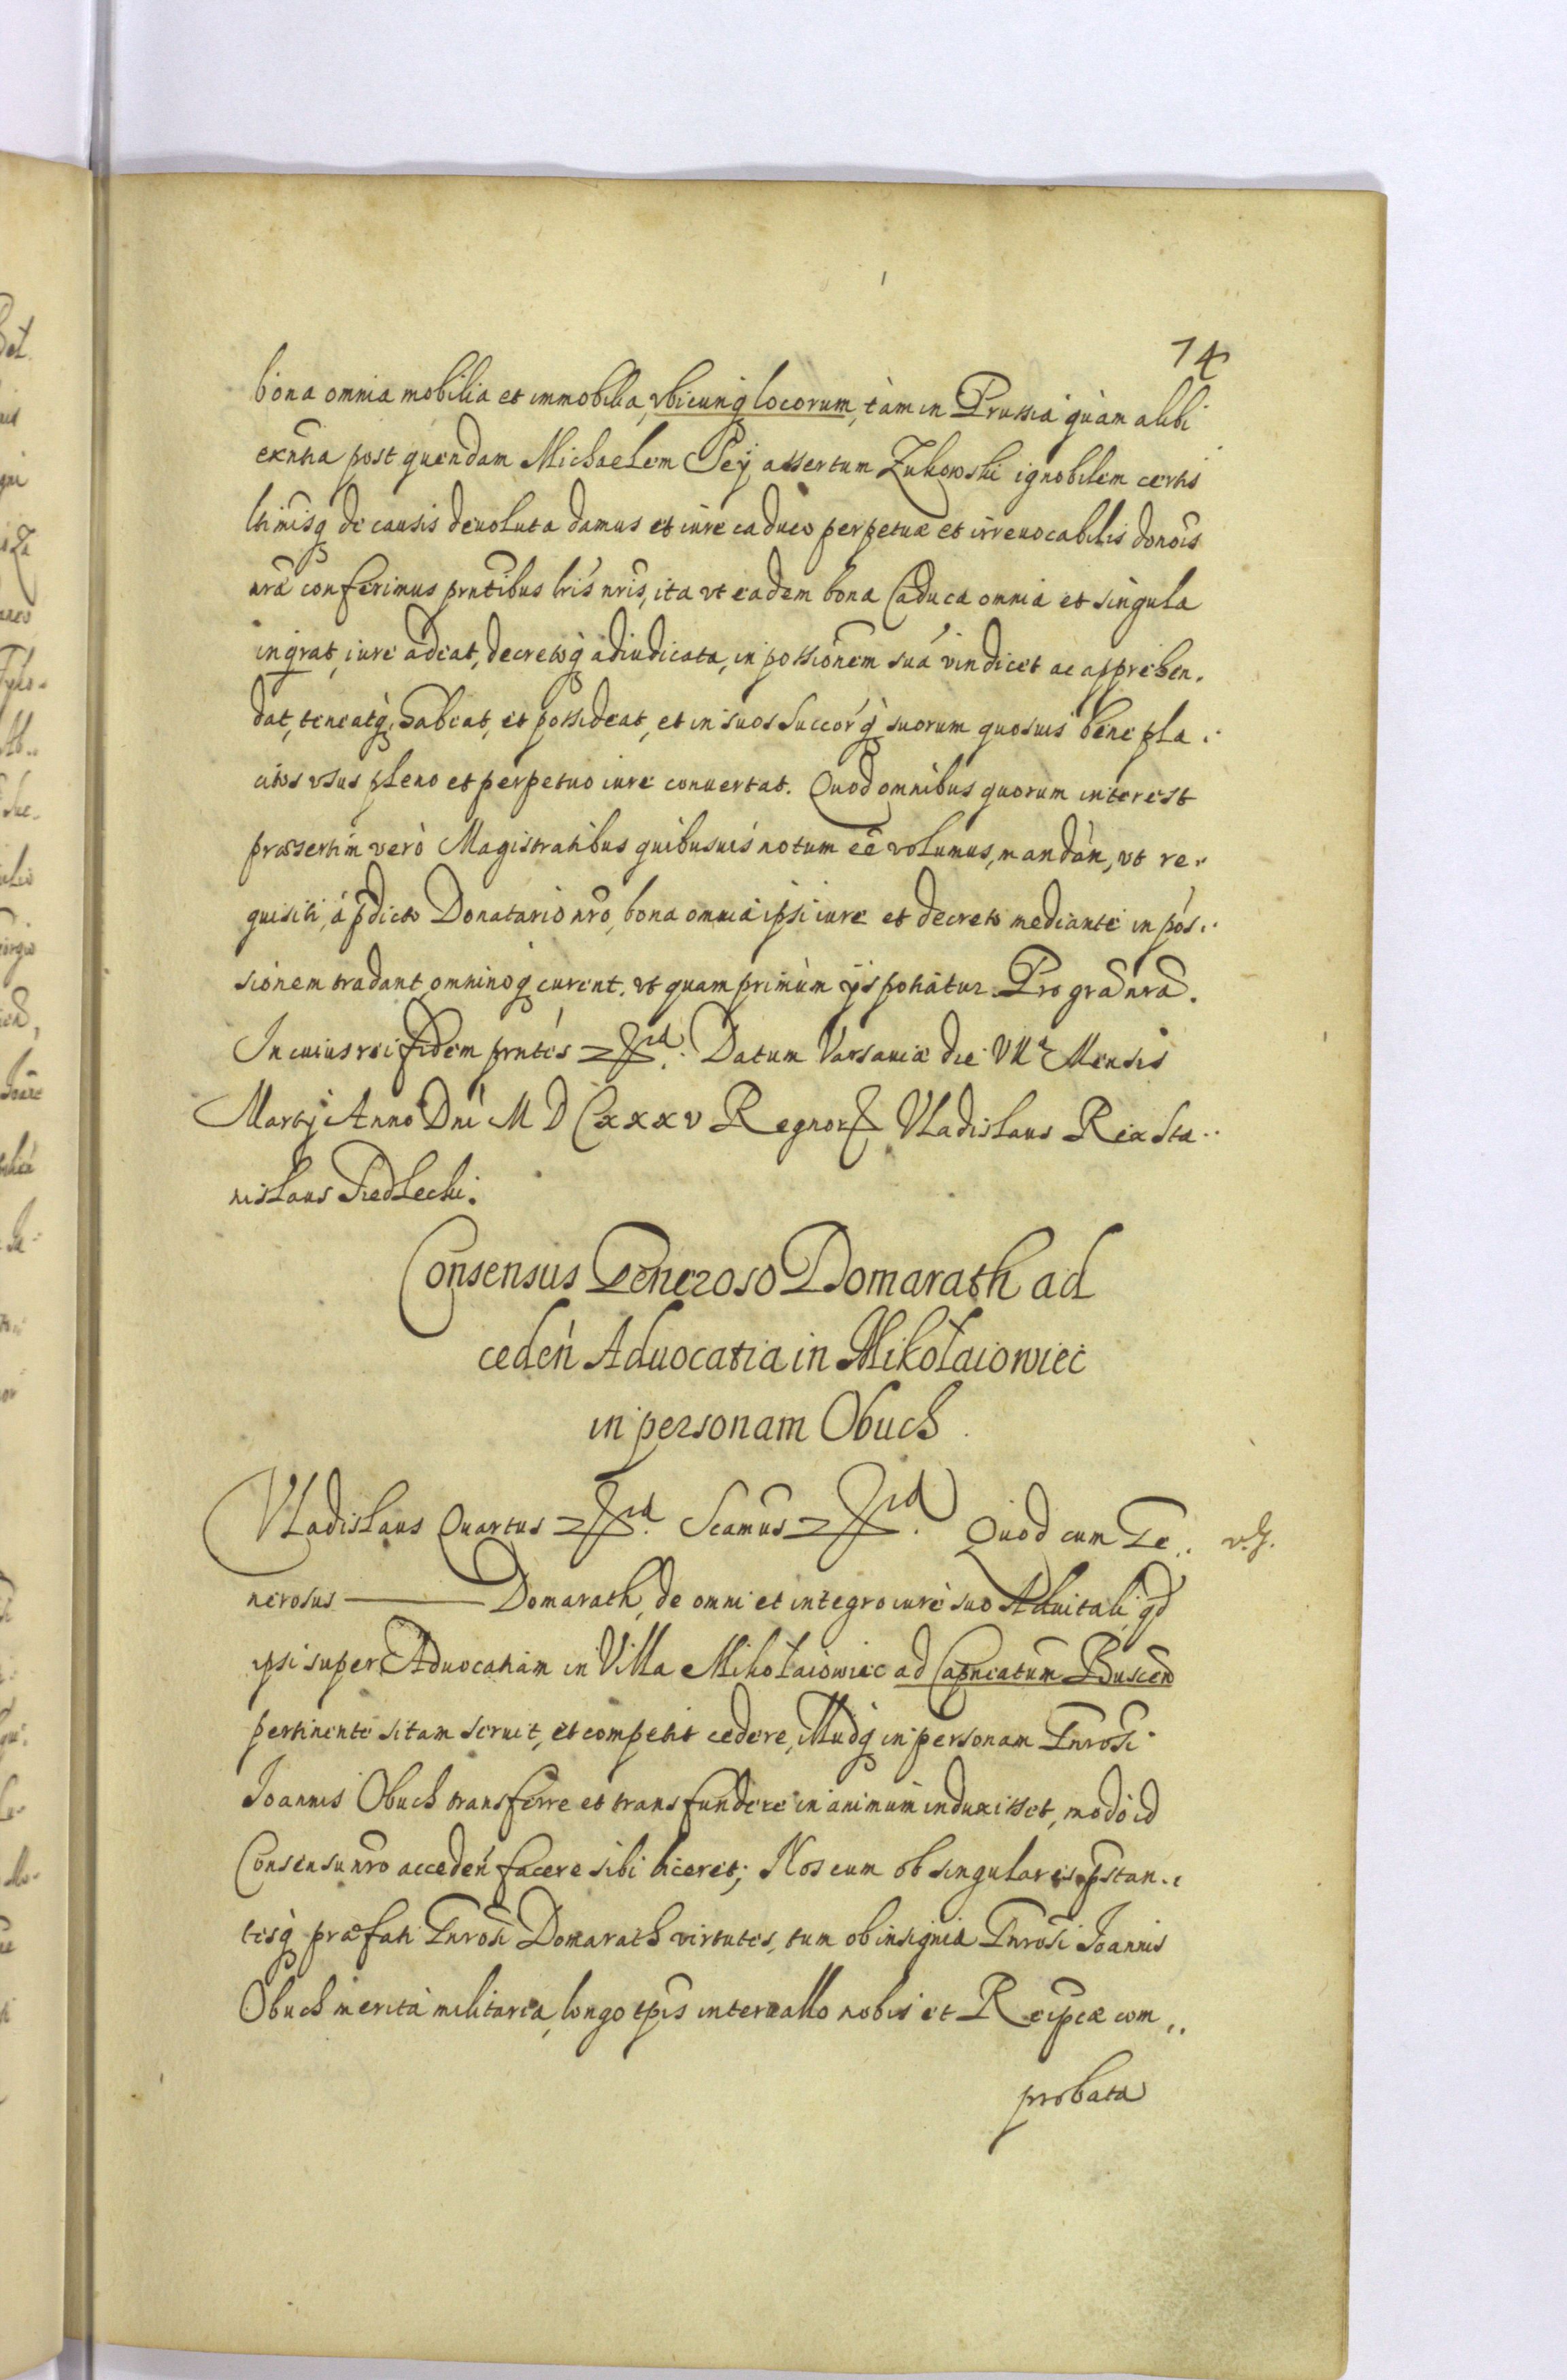 74
bona omnia mobilia et immobilia, vbicunq locorum, tàm in Prussia quàm alibi
exntia post quendam Michaelem Pey assertum Zukowski ignobilem certis
ltimisq de causis deuoluta damus et iure caduco perpetuæ et irreuocabilis donois
nræ conferimus prntibus lris nris, ita vt eadem bona Caduca omnia et singula
ingrat, iure adeat, decretoq adiudicata, in possionem suá vindicet ac apprehen.
dat, teneatq, habeat, et possideat, et in suos Succoŕq suorum quosuis bene pla..
citos vsus pleno et perpetuo iure conuertat. Quod omnibus quorum interest
præsertim verò Magistratibus quibusuis notum eê volumus, mandań, vt re..
quisiti, á pdicto Donatario nro, bona omnia ipsi iure et decreto mediante in pós..
siónem tradant, omninoq curent. vt quam primùm ijs potiatur. Pro gra nra.
In cuius rei fidem prntes Datum Varsauiæ die VII Mensis
Martij Anno Dni M D Cxxxv Regnor Vladislaus Rex Sta..
nislaus Siedlecki.
Consensus Generoso Domarath ad
cedeń Aduocatia in Mikołaiowiec
in personam Obuch.
Vladislaus Quartus Scamus Quod cum Ge..
nerosus ——— Domarath, de omni et integro iure suo Aduitali, qd
ipsi super Aduocatiam in Villa Mikołaiowiec ad Capneatum Buscen
pertinente sitam seruit, et competit cedere, Illudq in personam Gnrosi
Joannis Obuch transferre et transfundere in animum induxisset, modo id
Consensu nro accedeń facere sibi liceret; Nos cum ob singulares pstan..
tesq præfati Gnrosi Domarath virtutes, tum ob insignia Gnrosi Joannis
Obuch merita militaria, longo tpis interuallo nobis et Reipcæ com..
probata